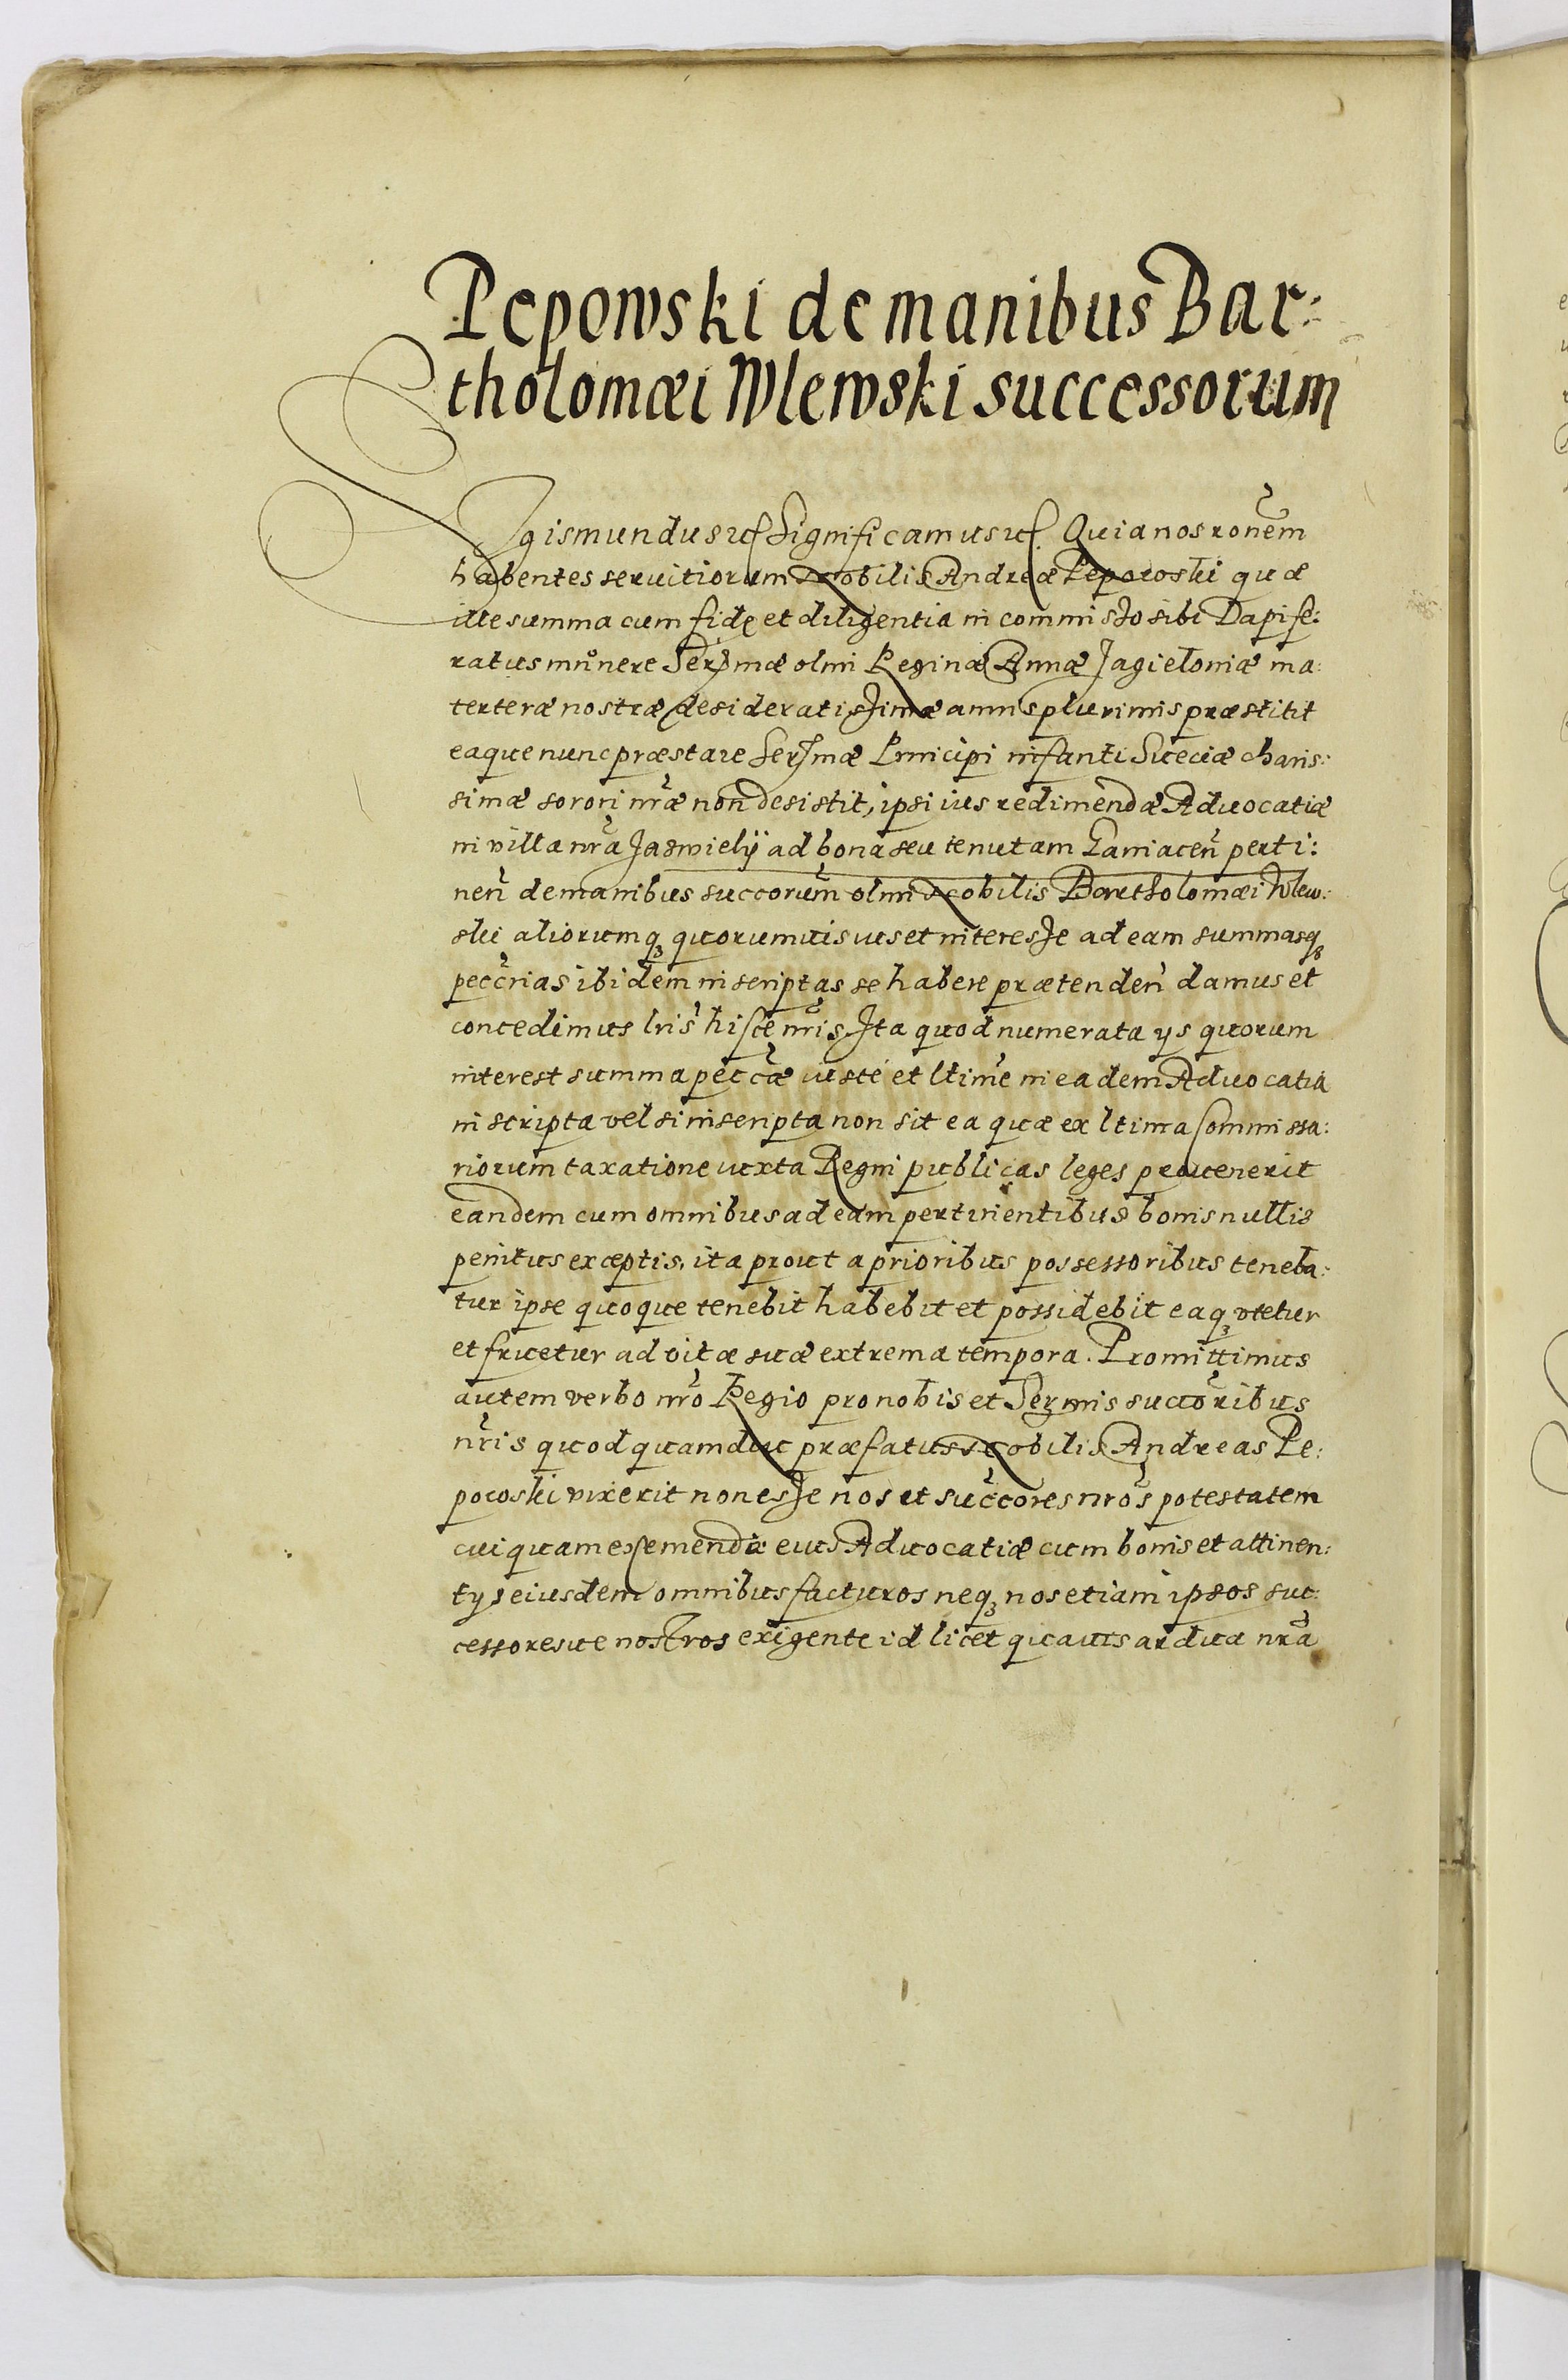 Pepowski de manibus Bar:
tholomæi Wlewski successorum
Sigismundus etc Significamus etc. Quia nos ronem
habentes seruitiorum Nobilis Andreæ Pepowski quæ
ille summa cum fide et diligentia in commisso sibi Dapife:
ratus munere Sermæ olim Reginæ Annæ Jagieloniæ ma:
terteræ nostræ desideratissimæ annis plurimis præstitit
eaque nunc præstare Sermæ Principi infanti Sueciæ charis:
simæ sorori nræ non desistit, ipsi ius redimendæ Aduocatiæ
in villa nra Jaswiely ad bona seu tenutam Laniacen perti:
nen de manibus succorum olim Nobilis Bartholomæi Wlew:
ski aliorumq quorumuis ius et interesse ad eam summasq
peccrias ibidem inscriptas se habere prætenden damus et
concedimus lris hisce nris Ita quod numerata ys quorum
interest summa peccæ iuste et ltime in eadem Aduocatia
inscripta vel si inscripta non sit ea quæ ex ltima Commissa:
riorum taxatione iuxta Regni publicas leges prouenerit
eandem cum omnibus ad eam pertinentibus bonis nullis
penitus exceptis, ita prout a prioribus possessoribus teneba:
tur ipse quoque tenebit habebit et possidebit eaq vtetur
et fruetur ad vitæ suæ extrema tempora. Promittimus
autem verbo nro Regio pro nobis et Sermis succoribus
nris quod quamdiu præfatus Nobilis Andreas Pe:
powski vixerit non esse nos et succores nros potestatem
cuiquam exemendæ eius Aduocatiæ cum bonis et attinen:
tys eiusdem omnibus facturos neq nos etiam ipsos suc:
cessoresue nostros exigente id licet quauis ardua nra